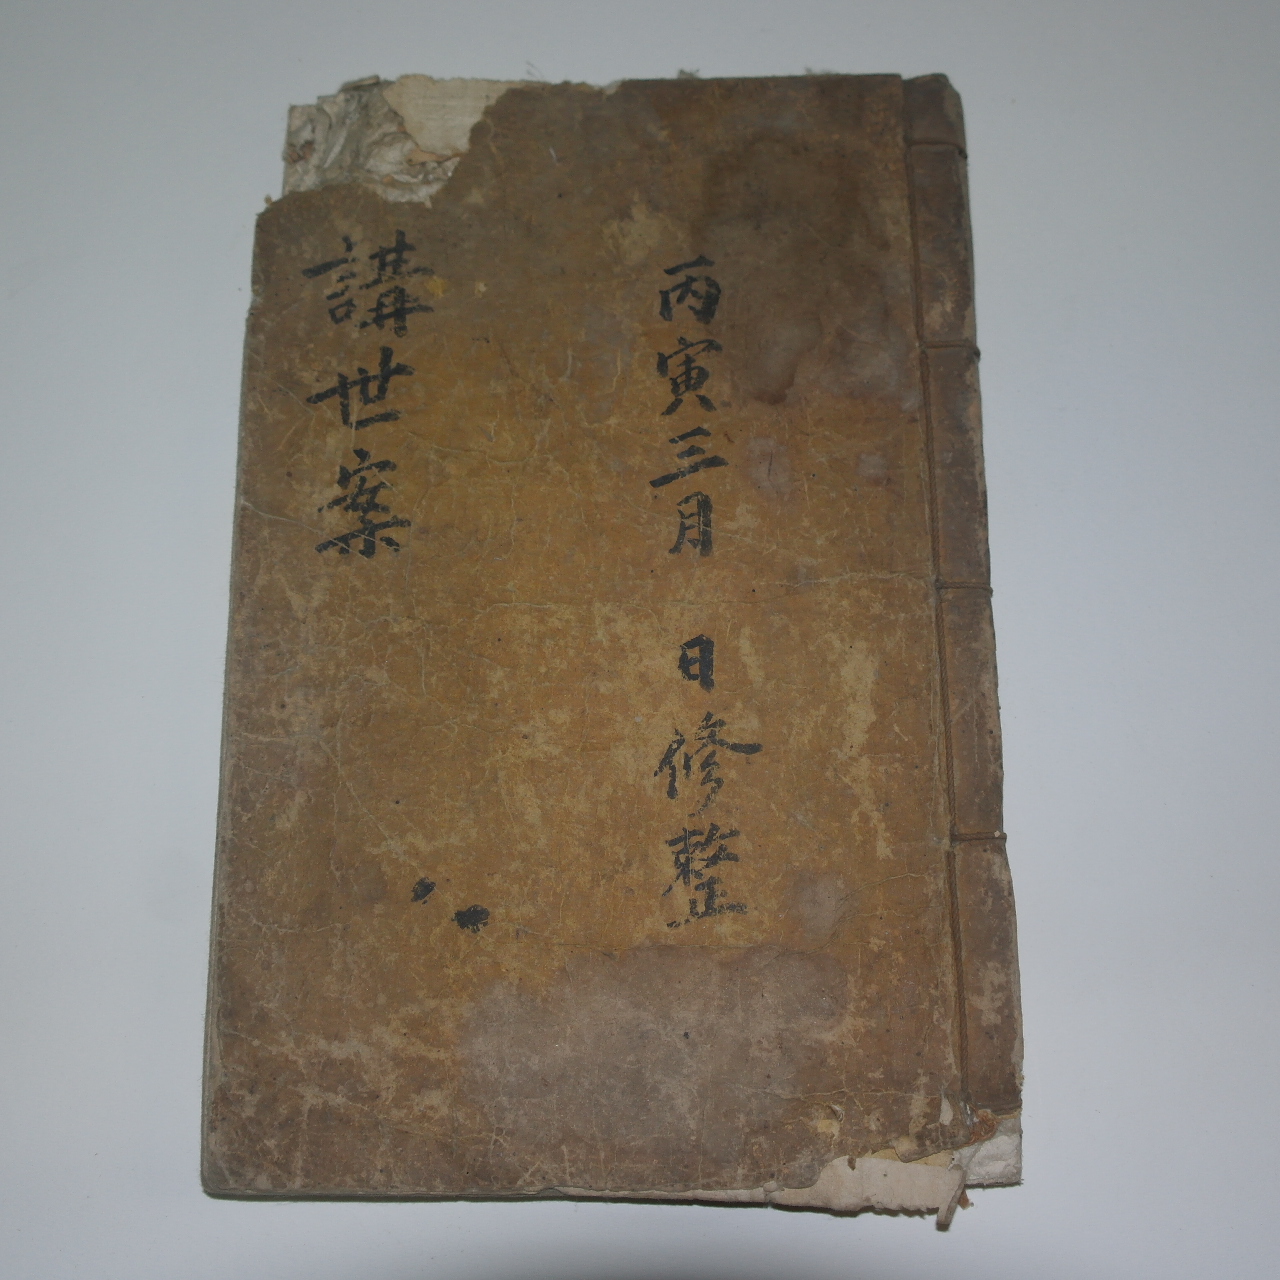 丙寅三月 日修整
講世案